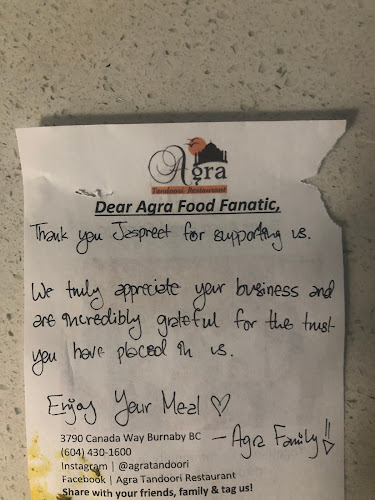 Agra
Tandoori Restaurant
Dear Agra Food Fanatic,
Thank you Jaspreet for supporting us.
We truly appreciate your business and
are incredibly grateful for the trust
you have placed in us.
Enjoy Your Meal ♡
— Agra Family!!
3790 Canada Way Burnaby BC
(604) 430-1600
Instagram | @agratandoori
Facebook | Agra Tandoori Restaurant
Share with your friends, family & tag us!